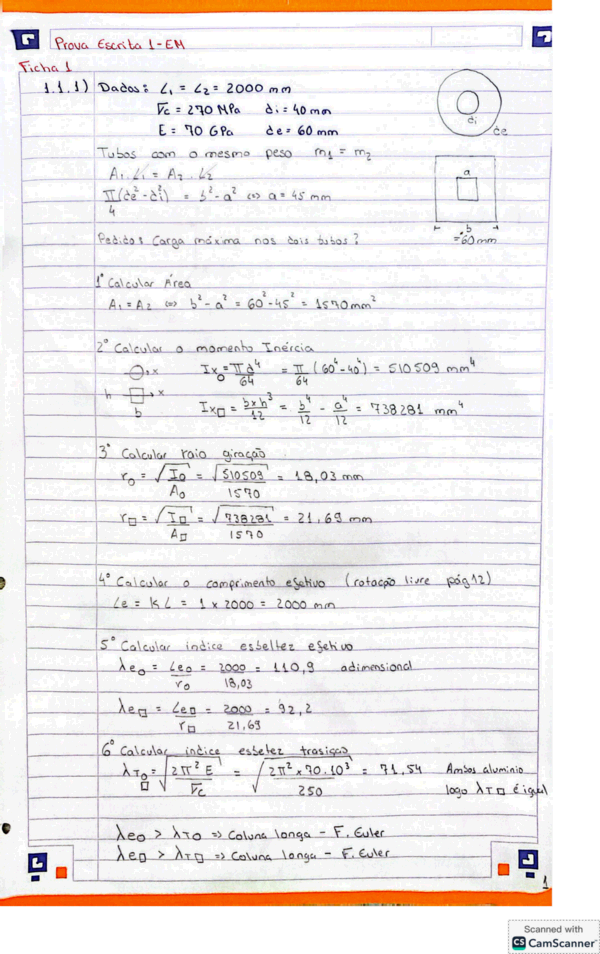 Prova Escrita 1-EM
Ficha 1
1.1.1) Dados: L1 = L2 = 2000 mm
σc = 270 MPa di = 40 mm
E = 70 GPa de = 60 mm
di
de
Tubos com o mesmo peso m1 = m2
A1.L1 = A2.L2
π/4 (de² - di²) = b² - a² <=> a = 45 mm
a
b
= 60 mm
Pedido: Carga máxima nos dois tubos?
1° Calcular Área
A1 = A2 <=> b² - a² = 60² - 45² = 1570 mm²
2° Calcular o momento Inércia
x Ix○ = πd⁴/64 = π/64 (60⁴ - 40⁴) = 510509 mm⁴
h x b Ix□ = b×h³/12 = b⁴/12 - a⁴/12 = 738281 mm⁴
3° Calcular raio giração
r○ = √(I○/A○) = √(510509/1570) = 18,03 mm
r□ = √(I□/A□) = √(738281/1570) = 21,69 mm
4° Calcular o comprimento efetivo (rotação livre pág 12)
Le = KL = 1 x 2000 = 2000 mm
5° Calcular indice esbeltez efetivo
λe○ = Le○/r○ = 2000/18,03 = 110,9 adimensional
λe□ = Le□/r□ = 2000/21,69 = 92,2
6° Calcular indice esbeltez trasição
λT○□ = √(2π² E/σc) = √(2π² x 70.10³/250) = 71,54 Ambos aluminio
logo λT□ é igual
λe○ > λT○ => Coluna longa - F. Euler
λe□ > λT□ => Coluna longa - F. Euler
1
Scanned with
CS CamScanner